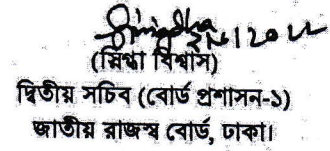 (স্নিগ্ধা বিশ্বাস)
দ্বিতীয় সচিব (বোর্ড প্রশাসন-১)
জাতীয় রাজস্ব বোর্ড, ঢাকা।